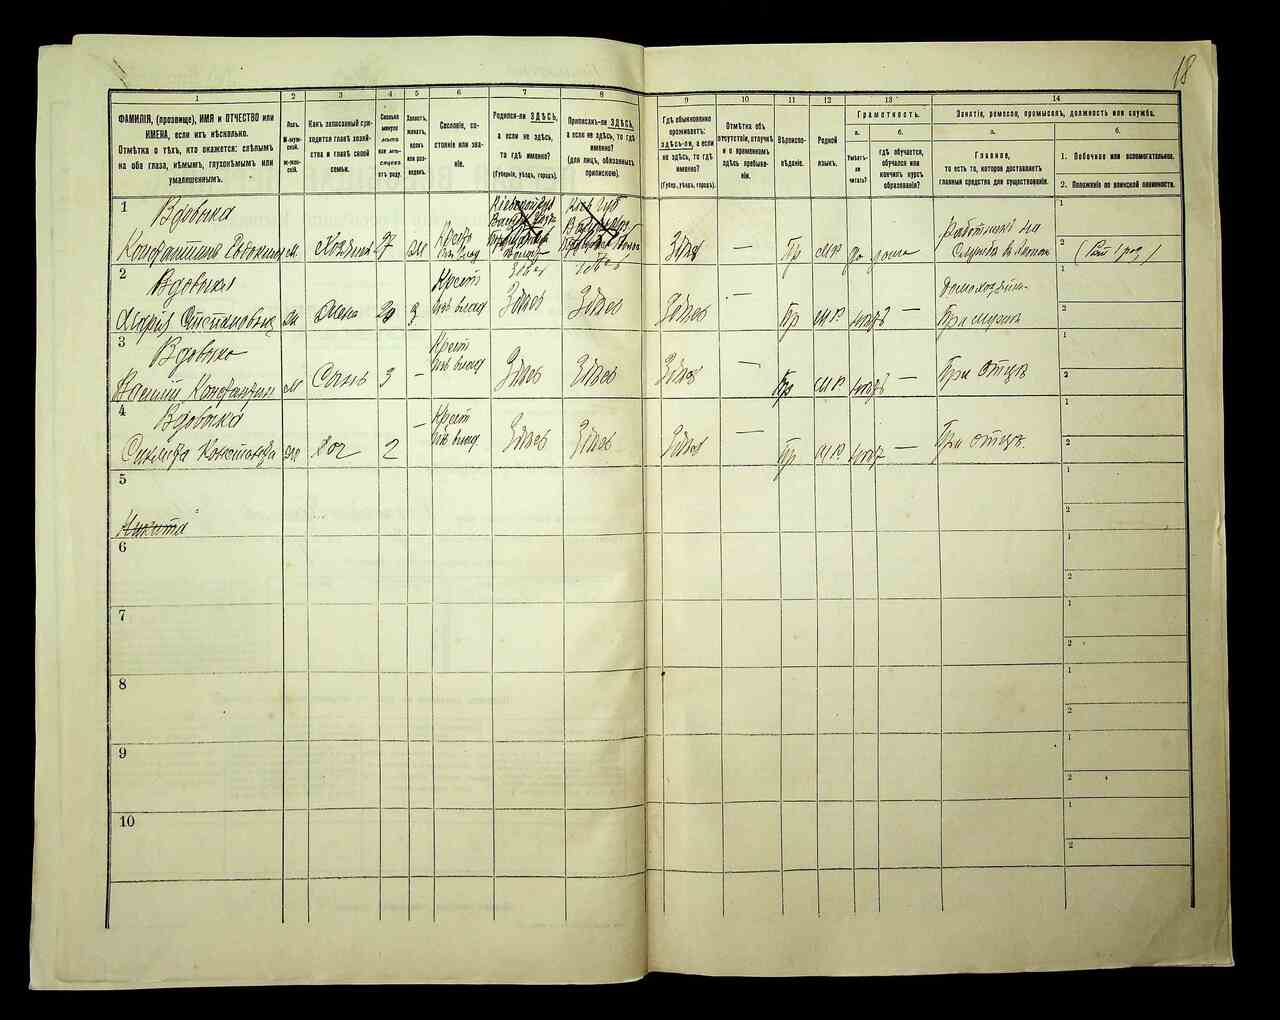 18
1
2
3
4
5
6
7
8
9
10
11
12
13
14
ФАМИЛІЯ, (прозвище), ИМЯ и ОТЧЕСТВО или
ИМЕНА, если ихъ нѣсколько.
Отмѣтка о тѣхъ, кто окажется: слѣпымъ
на оба глаза, нѣмымъ, глухонѣмымъ или
умалишеннымъ.
Полъ.
М-муж-
ской.
Ж-жен-
скій.
Какъ записанный при-
ходится главѣ хозяй-
ства и главѣ своей
семьи.
Сколько
минуло
лѣтъ
или мѣ-
сяцевъ
отъ роду.
Холостъ,
женатъ,
вдовъ
или раз-
веденъ.
Сословіе, со-
стояніе или зва-
ніе.
Родился-ли ЗДѢСЬ,
а если не здѣсь,
то гдѣ именно?
(Губернія, уѣздъ, городъ).
Приписанъ-ли ЗДѢСЬ,
а если не здѣсь, то гдѣ
именно?
(для лицъ, обязанныхъ
припискою).
Гдѣ обыкновенно
проживаетъ:
здѣсь-ли, а если
не здѣсь, то гдѣ
именно?
(Губер., уѣздъ, городъ).
Отмѣтка объ
отсутствіи, отлучкѣ
и о временномъ
здѣсь пребыва-
ніи.
Вѣроиспо-
вѣданіе.
Родной
языкъ.
Грамотность.
а.
Умѣетъ-
ли
читать?
б.
гдѣ обучается,
обучался или
кончилъ курсъ
образованія?
Занятіе, ремесло, промыселъ, должность или служба.
а.
Главное,
то есть то, которое доставляетъ
главныя средства для существованія.
б.
1. Побочное или вспомогательное.
2. Положеніе по воинской повинности.
1
Вдовыка
Константинъ Евдокимов м Хозяинъ 27 жн Крест Здѣсь Здѣсь Здѣсь — Пр мр да дома
Работникъ
1
2
2
Вдовыка
Марія Степановна ж Жена 20 з Крест Здѣсь Здѣсь Здѣсь — Пр мр нѣтъ —
При мужѣ
1
2
3
Вдовыка
Василій Константин м Сынъ 3 — Крест Здѣсь Здѣсь Здѣсь — Пр мр нѣтъ — При отцѣ
1
2
4
Вдовыка
Константинова ж Доч 2 — Крест Здѣсь Здѣсь Здѣсь — Пр мр нѣтъ — При отцѣ
1
2
5
Никита
1
2
6
1
2
7
1
2
8
1
2
9
1
2
10
1
2